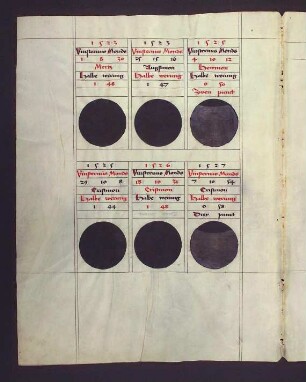 1523
Vinsternus Monds
1 8 20
Mercz
Halbe werung
1 46
1523
Vinsternus Monds
25 15 18
Augstmon
Halbe werung
1 47
1525
Vinsternus Monds
4 10 12
Halbe werung
0 50
punct
1525
Vinsternus Monds
29 10 8
Cristmon
Halbe werung
1 44
1526
Vinsternus Monds
18 10 30
Cristmon
Halbe werung
1 48
1527
Vinsternus Monds
7 10 54
Cristmon
Halbe werung
0 58
punct